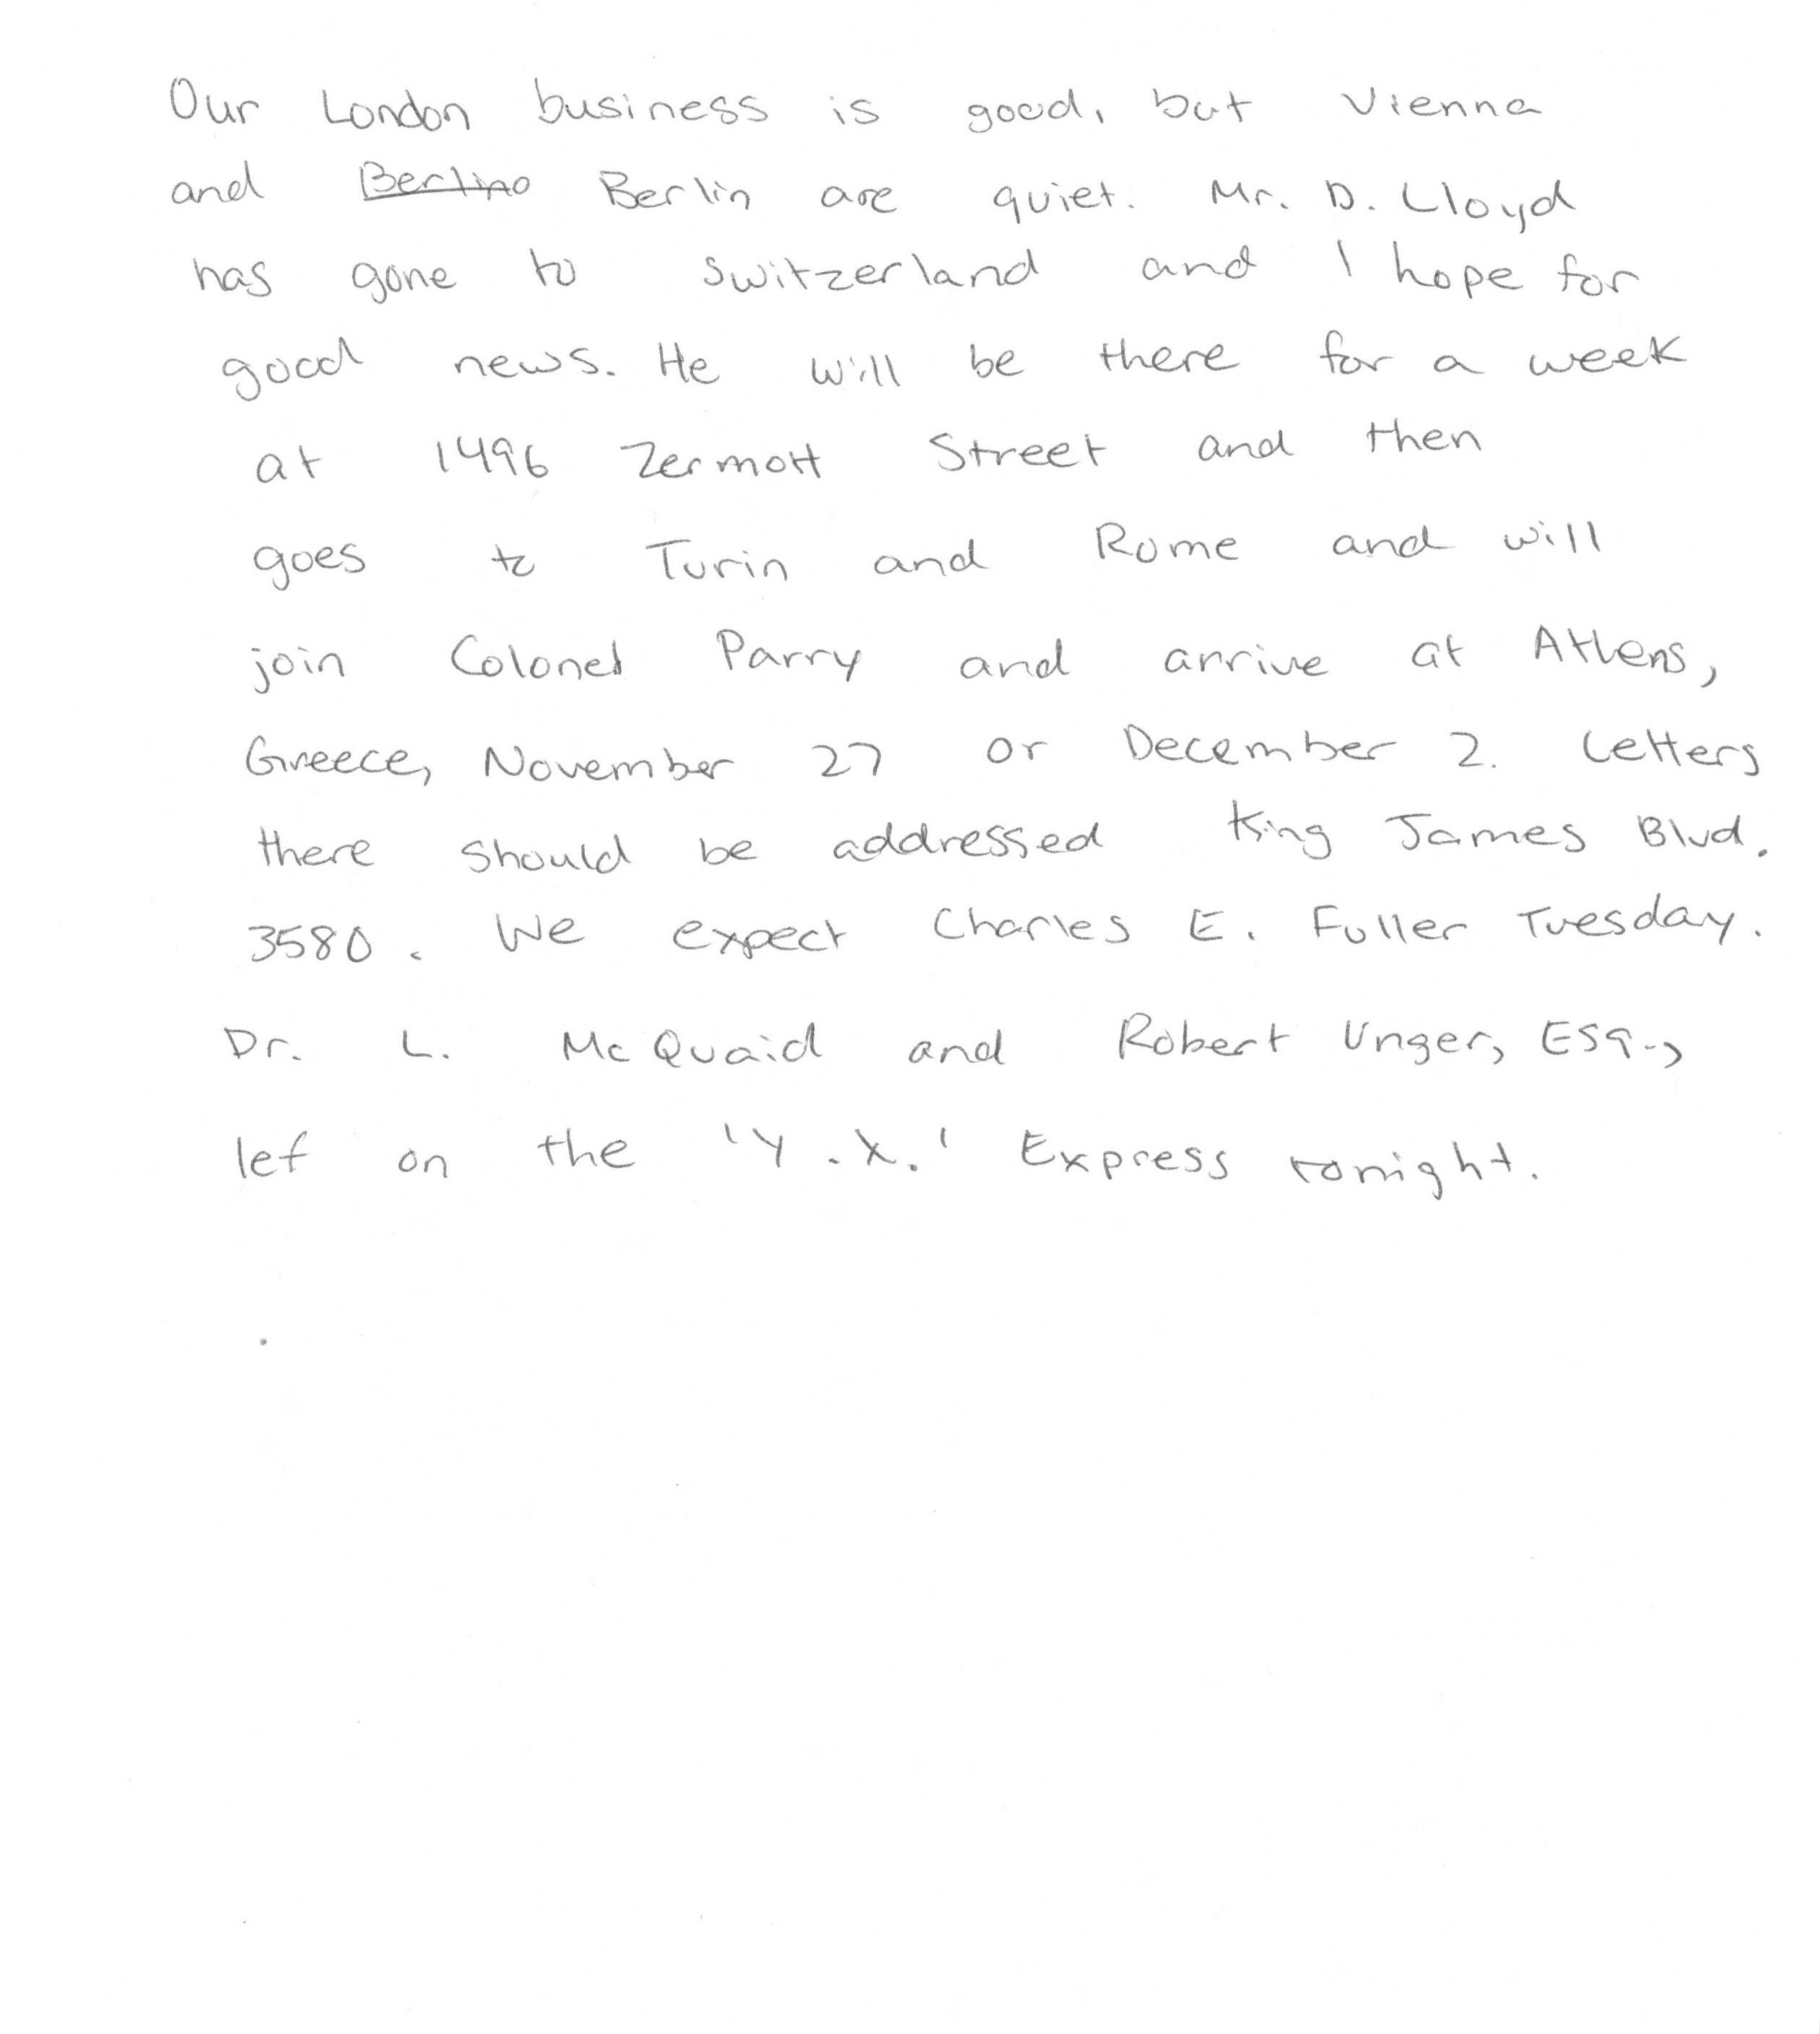 Our London business is good, but Vienna
and Berlino Berlin are quiet. Mr. D. Lloyd
has gone to Switzerland and I hope for
good news. He will be there for a week
at 1496 Zermott Street and then
goes to Turin and Rome and will
join Colonel Parry and arrive at Athens,
Greece, November 27 or December 2. Letters
there should be addressed King James Blvd.
3580. We expect Charles E. Fuller Tuesday.
Dr. L. McQuaid and Robert Unger, Esq.,
lef on the 'Y.X.' Express tonight.